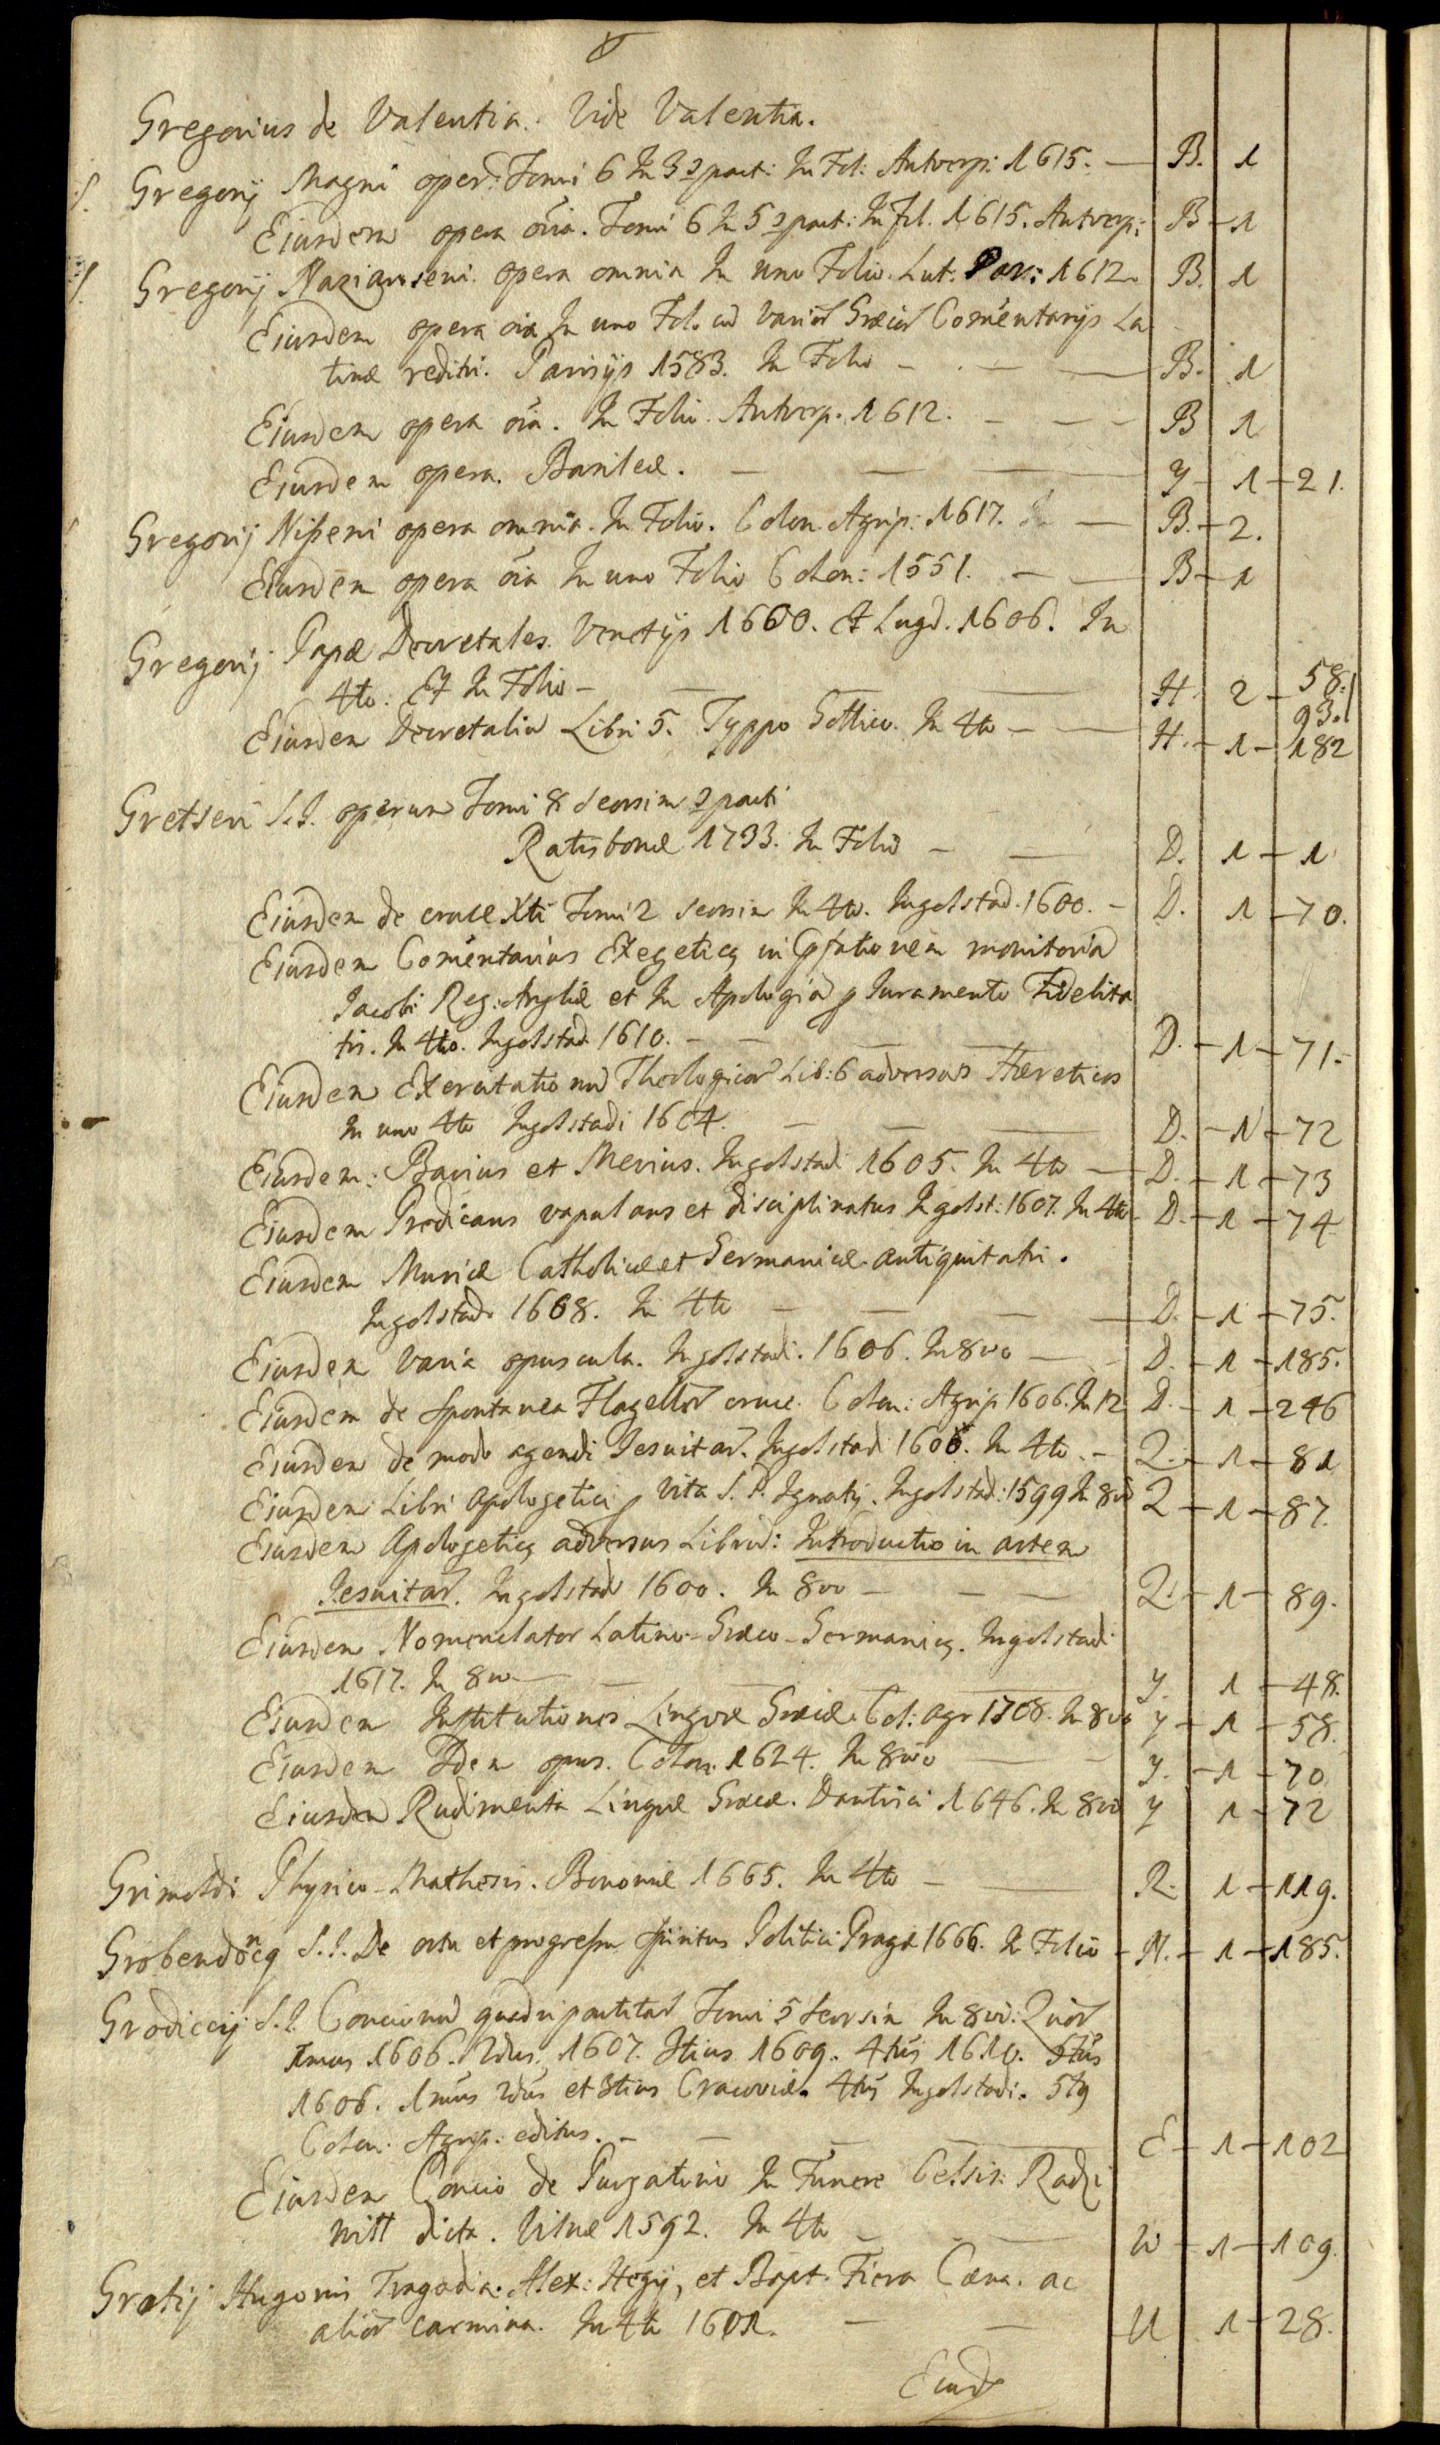 Gregorius de Valentia. Vide Valentia.
S. Gregorij Magni oper: Tomi 6 In 3 part: In Fol: Antverp: 1615. — B. 1
Eiusdem opera oia. Tomi 6 In 5 part: In fol. 1615. Antverp: B - 1
S. Gregorij Nazianseni opera omnia In uno Folio. Lut: Par: 1612. B. 1
Eiusdem opera oia In uno Fol. cu varior Græcor Comentarijs La
tine redditi. Parisijs 1583. In Folio — B. 1
Eiusdem opera oia. In Folio. Antverp. 1612. — B 1
Eiusdem opera. Basileæ. — Y - 1 - 21.
Gregorij Nißeni opera omnia. In Folio. Colon. Agrip: 1617. — B. - 2.
Eiusdem opera oia In uno Folio Colon: 1551. — B - 1
Gregorij Papæ Decretales. Venetijs 1600. Et Lugd. 1606. In
4to. Et In Folio — H. 2 - 58. 93.
Eiusdem Decretaliu Libri 5. Typpo Gottico. In 4to — H. - 1 - 182
Gretseri S.I. operum Tomi 8 seorsim parti
Ratisbonæ 1733. In Folio — D. 1 - 1
Eiusdem de cruce Xti Tomi 2 seorsim In 4to. Ingolstad. 1600. - D. 1 - 70.
Eiusdem Comentarius Exegeticq in Pfationem monitoria
Jacobi Reg: Angliæ et In Apologia p Iuramento Fidelita
tis. In 4to. Ingolstad. 1610. — D. - 1 - 71.
Eiusdem Exercitationu Theologicar Lib: 6 adversus Hæreticos
In uno 4to Ingolstadi 1604. — D. - 1 - 72
Eiusdem: Bavius et Mevius. Ingolstad: 1605. In 4to — D. - 1 - 73
Eiusdem Prædicans vapulans et disciplinatus Ingolst: 1607. In 4to D. - 1 - 74
Eiusdem Muricæ Catholicæ et Germanicæ antiquitatis.
Ingolstad. 1608. In 4to — D. - 1 - 75.
Eiusdem Varia opuscula. Ingolstadi. 1606. In 8vo — D. - 1 - 185.
Eiusdem de spontanea Flagellor cruce. Colon: Agrip 1606. In 12 D. - 1 - 246
Eiusdem de modo agendi Jesuitar. Ingolstad: 1600. In 4to. - Q. - 1 - 81
Eiusdem Libri apologetici p Vita S. P. Ignatij. Ingolstad: 1599 In 8vo Q - 1 - 87.
Eiusdem Apologeticq adversus Libru: Introductio in artem
Jesuitar. Ingolstad 1600. In 8vo — Q. - 1 - 89.
Eiusdem Nomenclator Latino-Græco-Germanicq. Ingolstadi
1617. In 8vo — Y. 1 - 48.
Eiusdem Institutiones Linguæ Græcæ. Col: agr 1708. In 8vo Y - 1 - 58.
Eiusdem Idem opus. Colon. 1624. In 8vo — Y. - 1 - 70
Eiusdem Rudimenta Linguæ Græcæ. Dantisci 1646. In 8vo Y 1 - 72
Grimoldi Physico-Mathesis. Bononiæ 1665. In 4to — R. 1 - 119.
Grobendoncq S.I. De ortu et progressu spiritus Politici Pragæ 1666. In Folio - N. - 1 - 185.
Grodiccij S.I. Concionu quadripartitar Tomi 5 seorsim In 8vo: Quor
1mus 1606. 2dus. 1607. 3tius 1609. 4tus 1610. 5tus
1606. 1mus 2dus et 3tius Cracoviæ. 4tus Ingolstadi. 5tq
Colon: Agrip: editus. — E - 1 - 102
Eiusdem Concio de Purgatorio In Funere Celsis: Radzi
vill dicta. Vilnæ 1592. In 4to — W - 1 - 109.
Grotij Hugonis Tragædia. Alex: Hegij, et Bapt: Fiera Cæna. ac
alior carmina. In 4to 1601. — U 1 - 28.
Eiusd